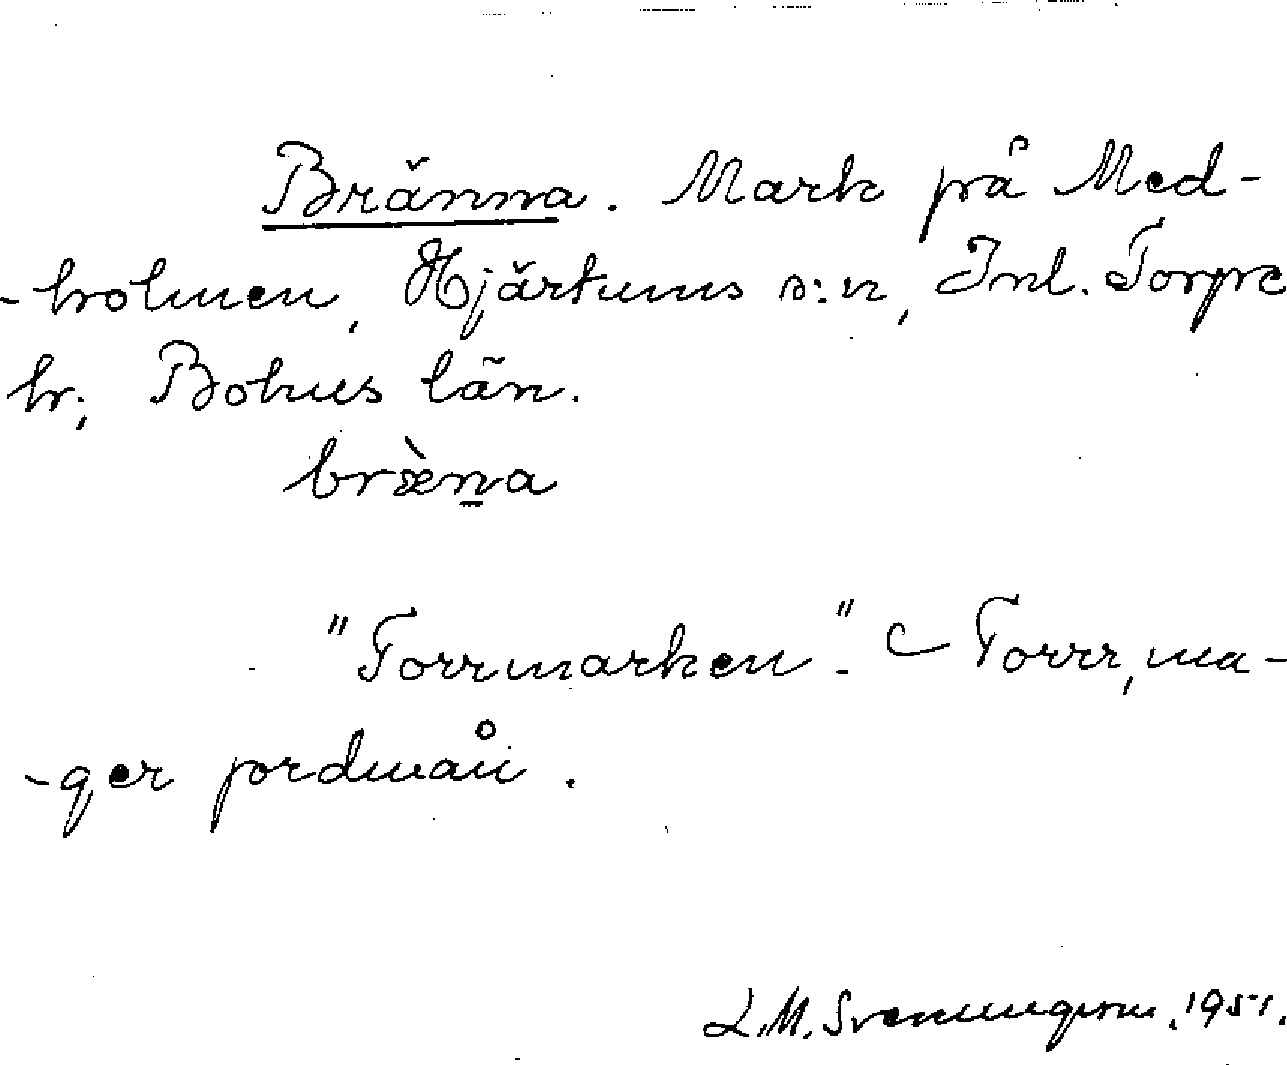 Bränna. Mark på Med-
-holmen, Hjärtums s:n, Inl. Torpe
hr, Bohus län.
bræ̀n̲a
"Torrmarken". Torrr, ma-
-ger jordmån.
L.M. Svenungsson. 1951.